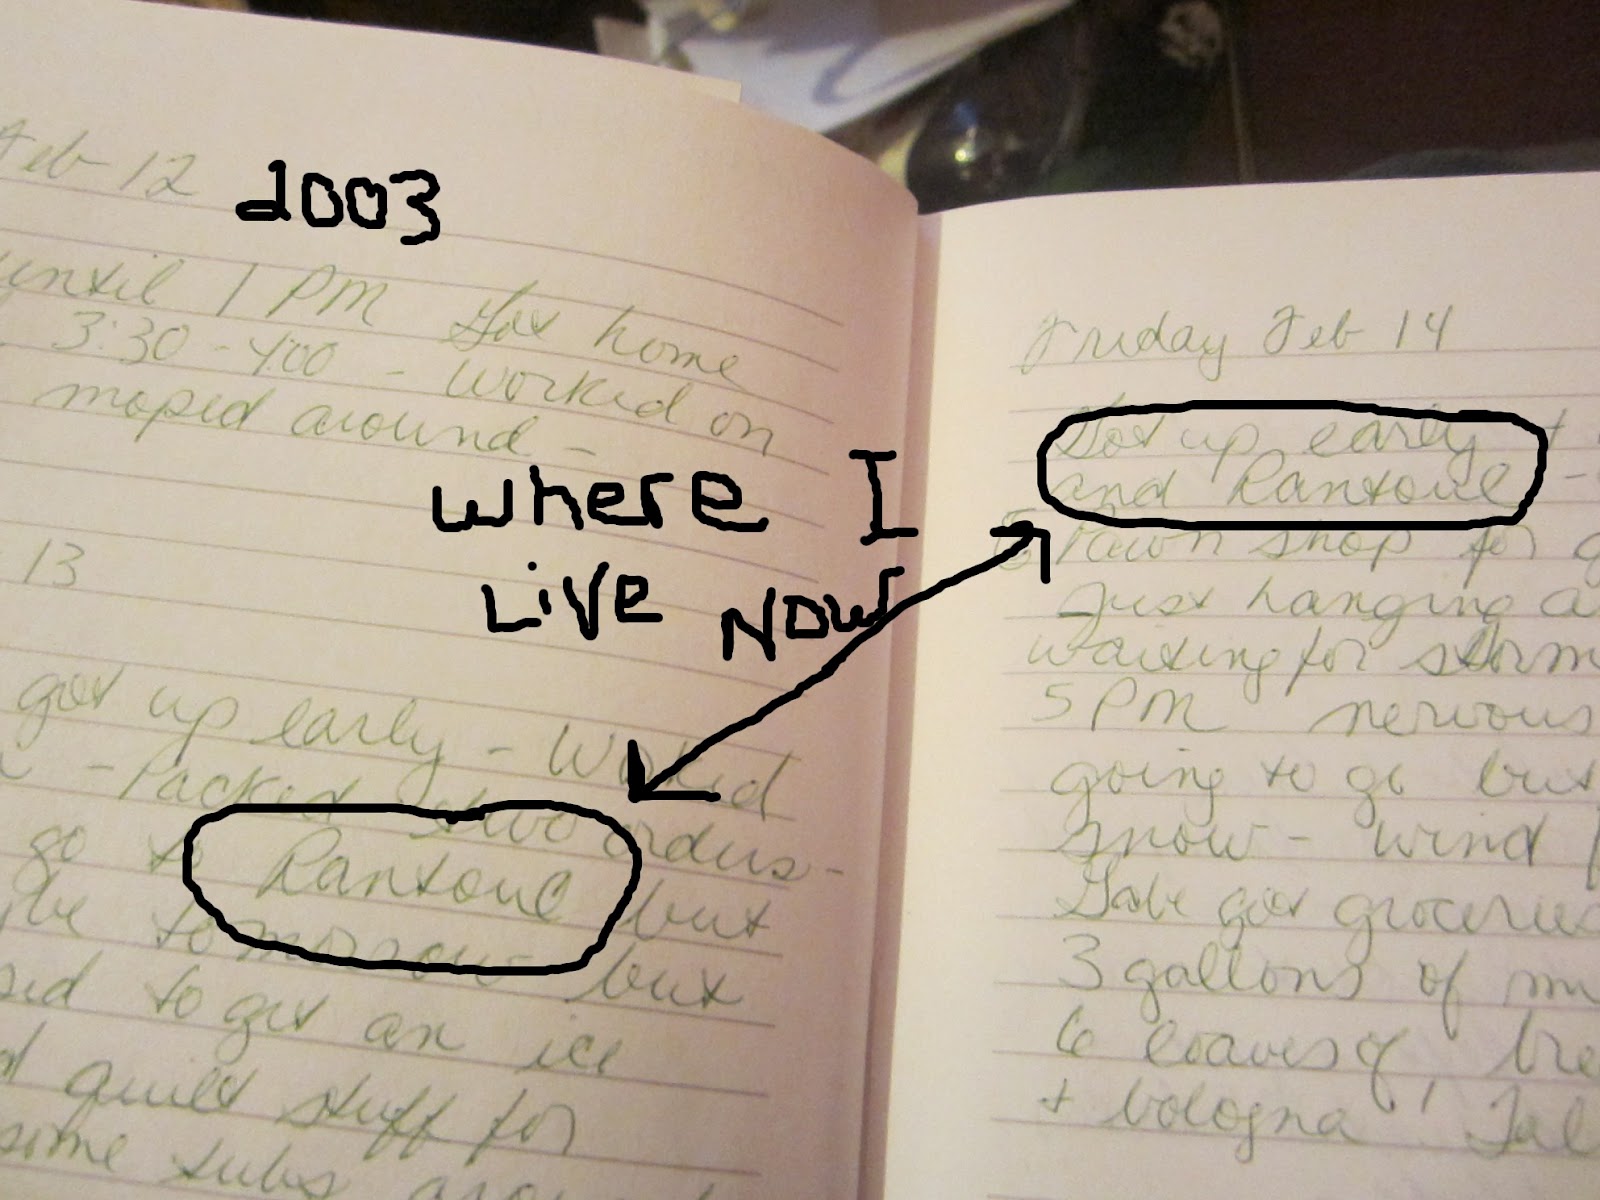 Feb 12
2003
until 1 PM Got home
3:30 - 4:00 - Worked on
moped around -
13
got up early - Worked
- Packed two orders -
go to Rantoul but
tomorrow but
to get an ice
quilt stuff for
some tubs
where I
Live Now
Friday Feb 14
Got up early +
and Rantoul -
Pawn shop for
Just hanging
waiting for storm
5 PM nervous
going to go but
snow - wind
Gabe got groceries
3 gallons of
6 loaves of
+ bologna !